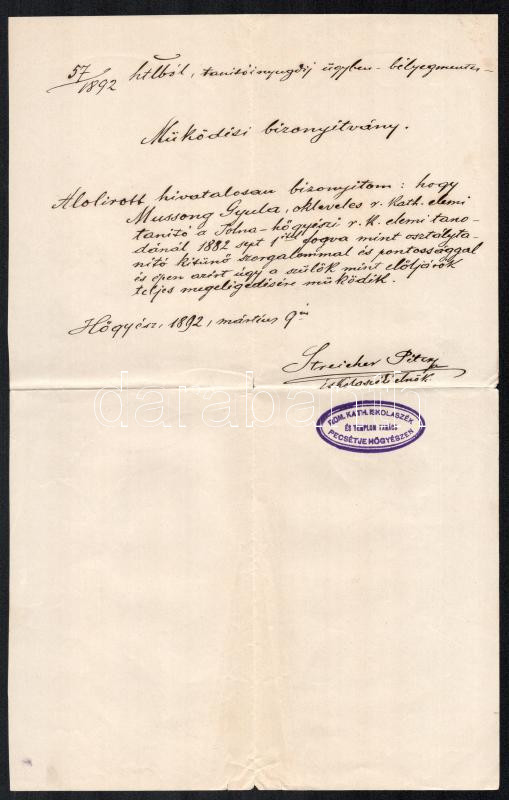 57/1892 htlból, tanitói nyugdij ügyben - bélyegmentes -
Működési bizonyitvány.
Alolirott hivatalosan bizonyitom: hogy
Mussong Gyula, okleveles r. kath. elemi
tanitó a Tolna-hőgyészi r. k. elemi tano-
dánál 1882 sept 1től fogva mint osztályta-
nitó kitünő szorgalommal és pontossággal
és épen azért úgy a szülők mint előljárók
teljes megelégedésére működik.
Hőgyész, 1892, március 9én
Streicher
iskolaszéki elnök.
RÓM. KATH. ISKOLASZÉK
ÉS TEMPLOM TANÁCS
PECSÉTJE HŐGYÉSZEN
darabanth